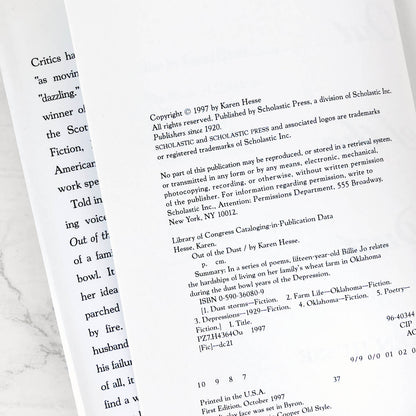 Critics ha
"as movin
"dazzling."
winner of
the Scot
Fiction,
American
work spe
Told in
ing voice
Out of the
of a fami
bowl. It
her idea
parched
by fire.
husband
his failu
of all, it
find a w
Copyright © 1997 by Karen Hesse
All rights reserved. Published by Scholastic Press, a division of Scholastic Inc.
Publishers since 1920.
SCHOLASTIC and SCHOLASTIC PRESS and associated logos are trademarks
or registered trademarks of Scholastic Inc.
No part of this publication may be reproduced, or stored in a retrieval system,
or transmitted in any form or by any means, electronic, mechanical,
photocopying, recording, or otherwise, without written permission
of the publisher. For information regarding permission, write to
Scholastic Inc., Attention: Permissions Department, 555 Broadway,
New York, NY 10012.
Library of Congress Cataloging-in-Publication Data
Hesse, Karen.
Out of the Dust / by Karen Hesse.
p. cm.
Summary: In a series of poems, fifteen-year-old Billie Jo relates
the hardships of living on her family's wheat farm in Oklahoma
during the dust bowl years of the Depression.
ISBN 0-590-36080-9
[1. Dust storms—Fiction. 2. Farm Life—Oklahoma—Fiction.
3. Depressions—1929—Fiction. 4. Oklahoma—Fiction. 5. Poetry—
Fiction.] I. Title.
PZ7.H4364Ou 1997 96-40344
[Fic]—dc21 CIP
AC
10 9 8 7 9/9 0/0 01 02 0
37
Printed in the U.S.A.
First Edition, October 1997
play face was set in Byron.
Cooper Old Style.